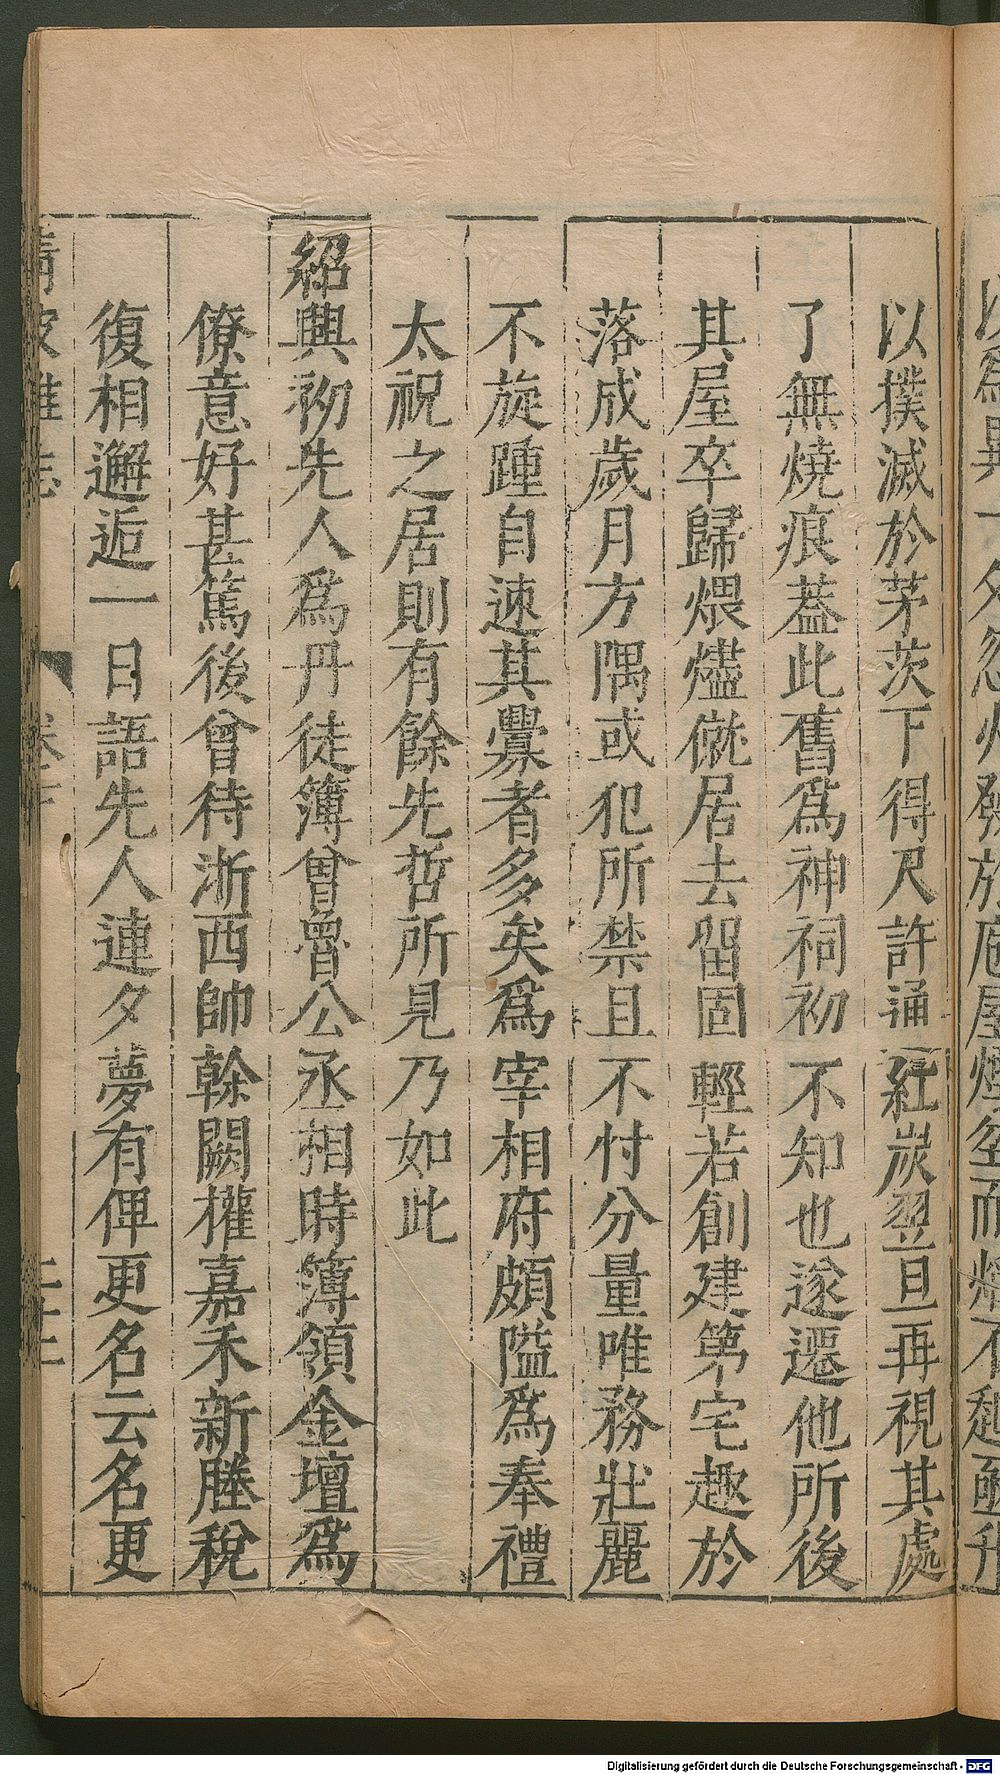 以撲滅於茅茨下得尺許通紅炭翌旦再視其處
了無燒痕葢此舊爲神祠初不知也遂遷他所後
其屋卒歸煨燼僦居去留固輕若創建第宅趣於
落成歲月方隅或犯所禁且不忖分量唯務壯麗
不旋踵自速其釁者多矣爲宰相府頗隘爲奉禮
太祝之居則有餘先哲所見乃如此
紹興初先人爲丹徒簿曾魯公丞相時簿領金壇爲
僚意好甚篤後曾待浙西帥幹闕權嘉禾新塍稅
復相邂逅一日語先人連夕夢有俾更名云名更
Digitalisierung gefördert durch die Deutsche Forschungsgemeinschaft - DFG